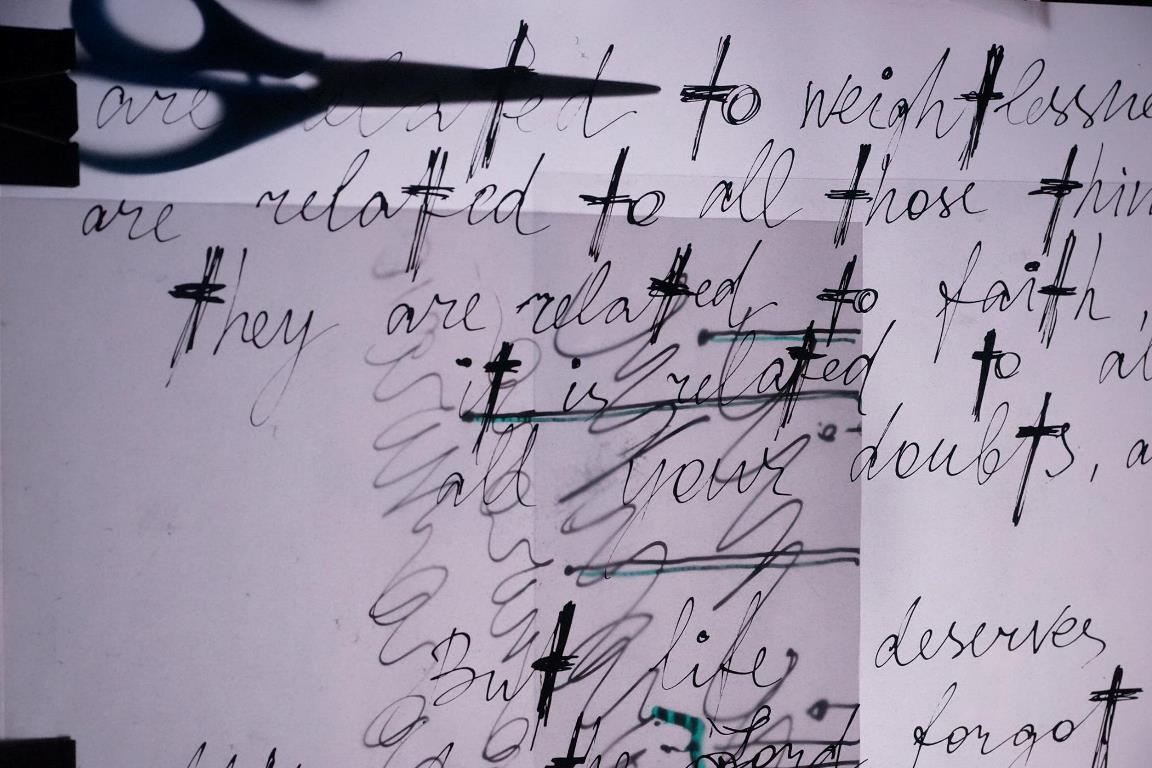 are related to weightlessne
are related to all those thin
they are related to faith,
it is related to al
all your doubts, a
But life deserves
the Lord forgot